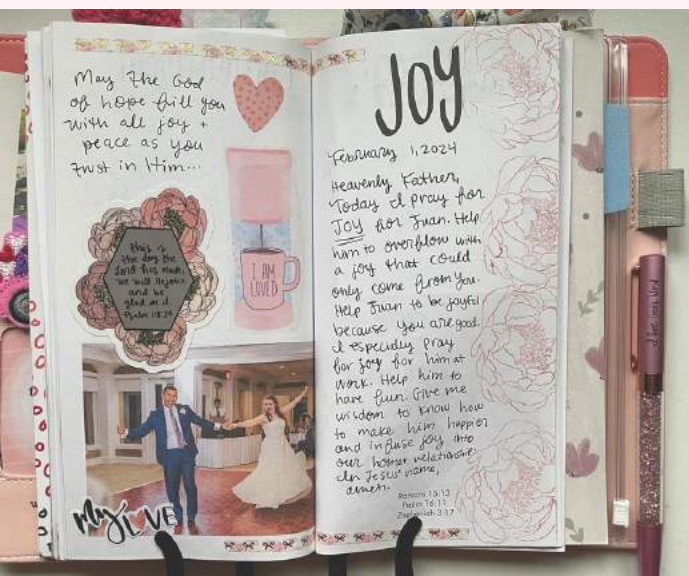 May the God
of hope fill you
with all joy +
peace as you
trust in Him...
this is
the day the
Lord has made,
we will rejoice
and be
glad in it.
Psalm 118:24
I AM
LOVED
My LOVE
JOY
February 1, 2024
Heavenly Father,
Today I pray for
JOY for Juan. Help
him to overflow with
a joy that could
only come from you.
Help Juan to be joyful
because you are good.
I especially pray
for joy for him at
work. Help him to
have fun. Give me
wisdom to know how
to make him happier
and infuse joy into
our home relationship
In Jesus' name,
amen.
Romans 15:13
Psalm 16:11
Zephaniah 3:17